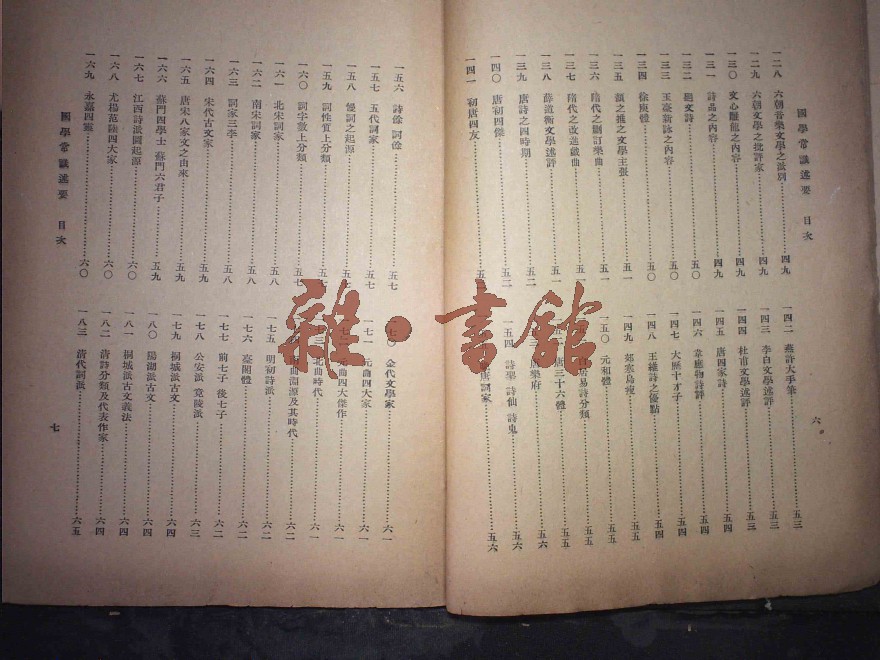 國學常識述要 目次
一二八 六朝音樂文學之派別 四九
一二九 六朝文學之批評家 四九
一三〇 文心雕龍之內容 四九
一三一 詩品之內容 四九
一三二 迴文詩 五〇
一三三 玉臺新詠之內容 五〇
一三四 徐庾體 五〇
一三五 顏之推之文學主張 五一
一三六 隋代之刪訂樂曲 五一
一三七 隋代之改進戲曲 五一
一三八 薛道衡文學述評 五一
一三九 唐詩之四時期 五二
一四〇 唐初四傑 五二
一四一 初唐四友
一四二 燕許大手筆 五三
一四三 李白文學述評 五三
一四四 杜甫文學述評 五三
一四五 唐四家詩 五四
一四六 韋應物詩評 五四
一四七 大歷十才子 五四
一四八 王維詩之優點 五四
一四九 郊寒島瘦 五五
一五〇 元和體 五五
易詩分類 五五
唐三十六體 五五
唐樂府 五六
五四 詩聖 詩仙 詩鬼 五六
唐詞家 五六
六
一五六 詩餘 詞餘 五七
一五七 五代詞家 五七
一五八 慢詞之起源 五七
一五九 詞性質上分類 五七
一六〇 詞字數上分類 五七
一六一 北宋詞家 五八
一六二 南宋詞家 五八
一六三 詞家三李 五八
一六四 宋代古文家 五九
一六五 唐宋八家文之由來 五九
一六六 蘇門四學士 蘇門六君子 五九
一六七 江西詩派圖起源 六〇
一六八 尤楊范陸四大家 六〇
一六九 永嘉四靈 六〇
〇 金代文學家 六一
一七一 元曲四大家 六一
元曲四大傑作 六一
曲時代 六一
曲淵源及其時代 六二
一七五 明初詩派 六二
一七六 臺閣體 六二
一七七 前七子 後七子 六二
一七八 公安派 竟陵派 六三
一七九 桐城派古文 六四
一八〇 陽湖派古文 六四
一八一 桐城派古文義法 六四
一八二 清詩分類及代表作家 六四
一八三 清代詞派 六五
國學常識述要 目次
七
雜·書館